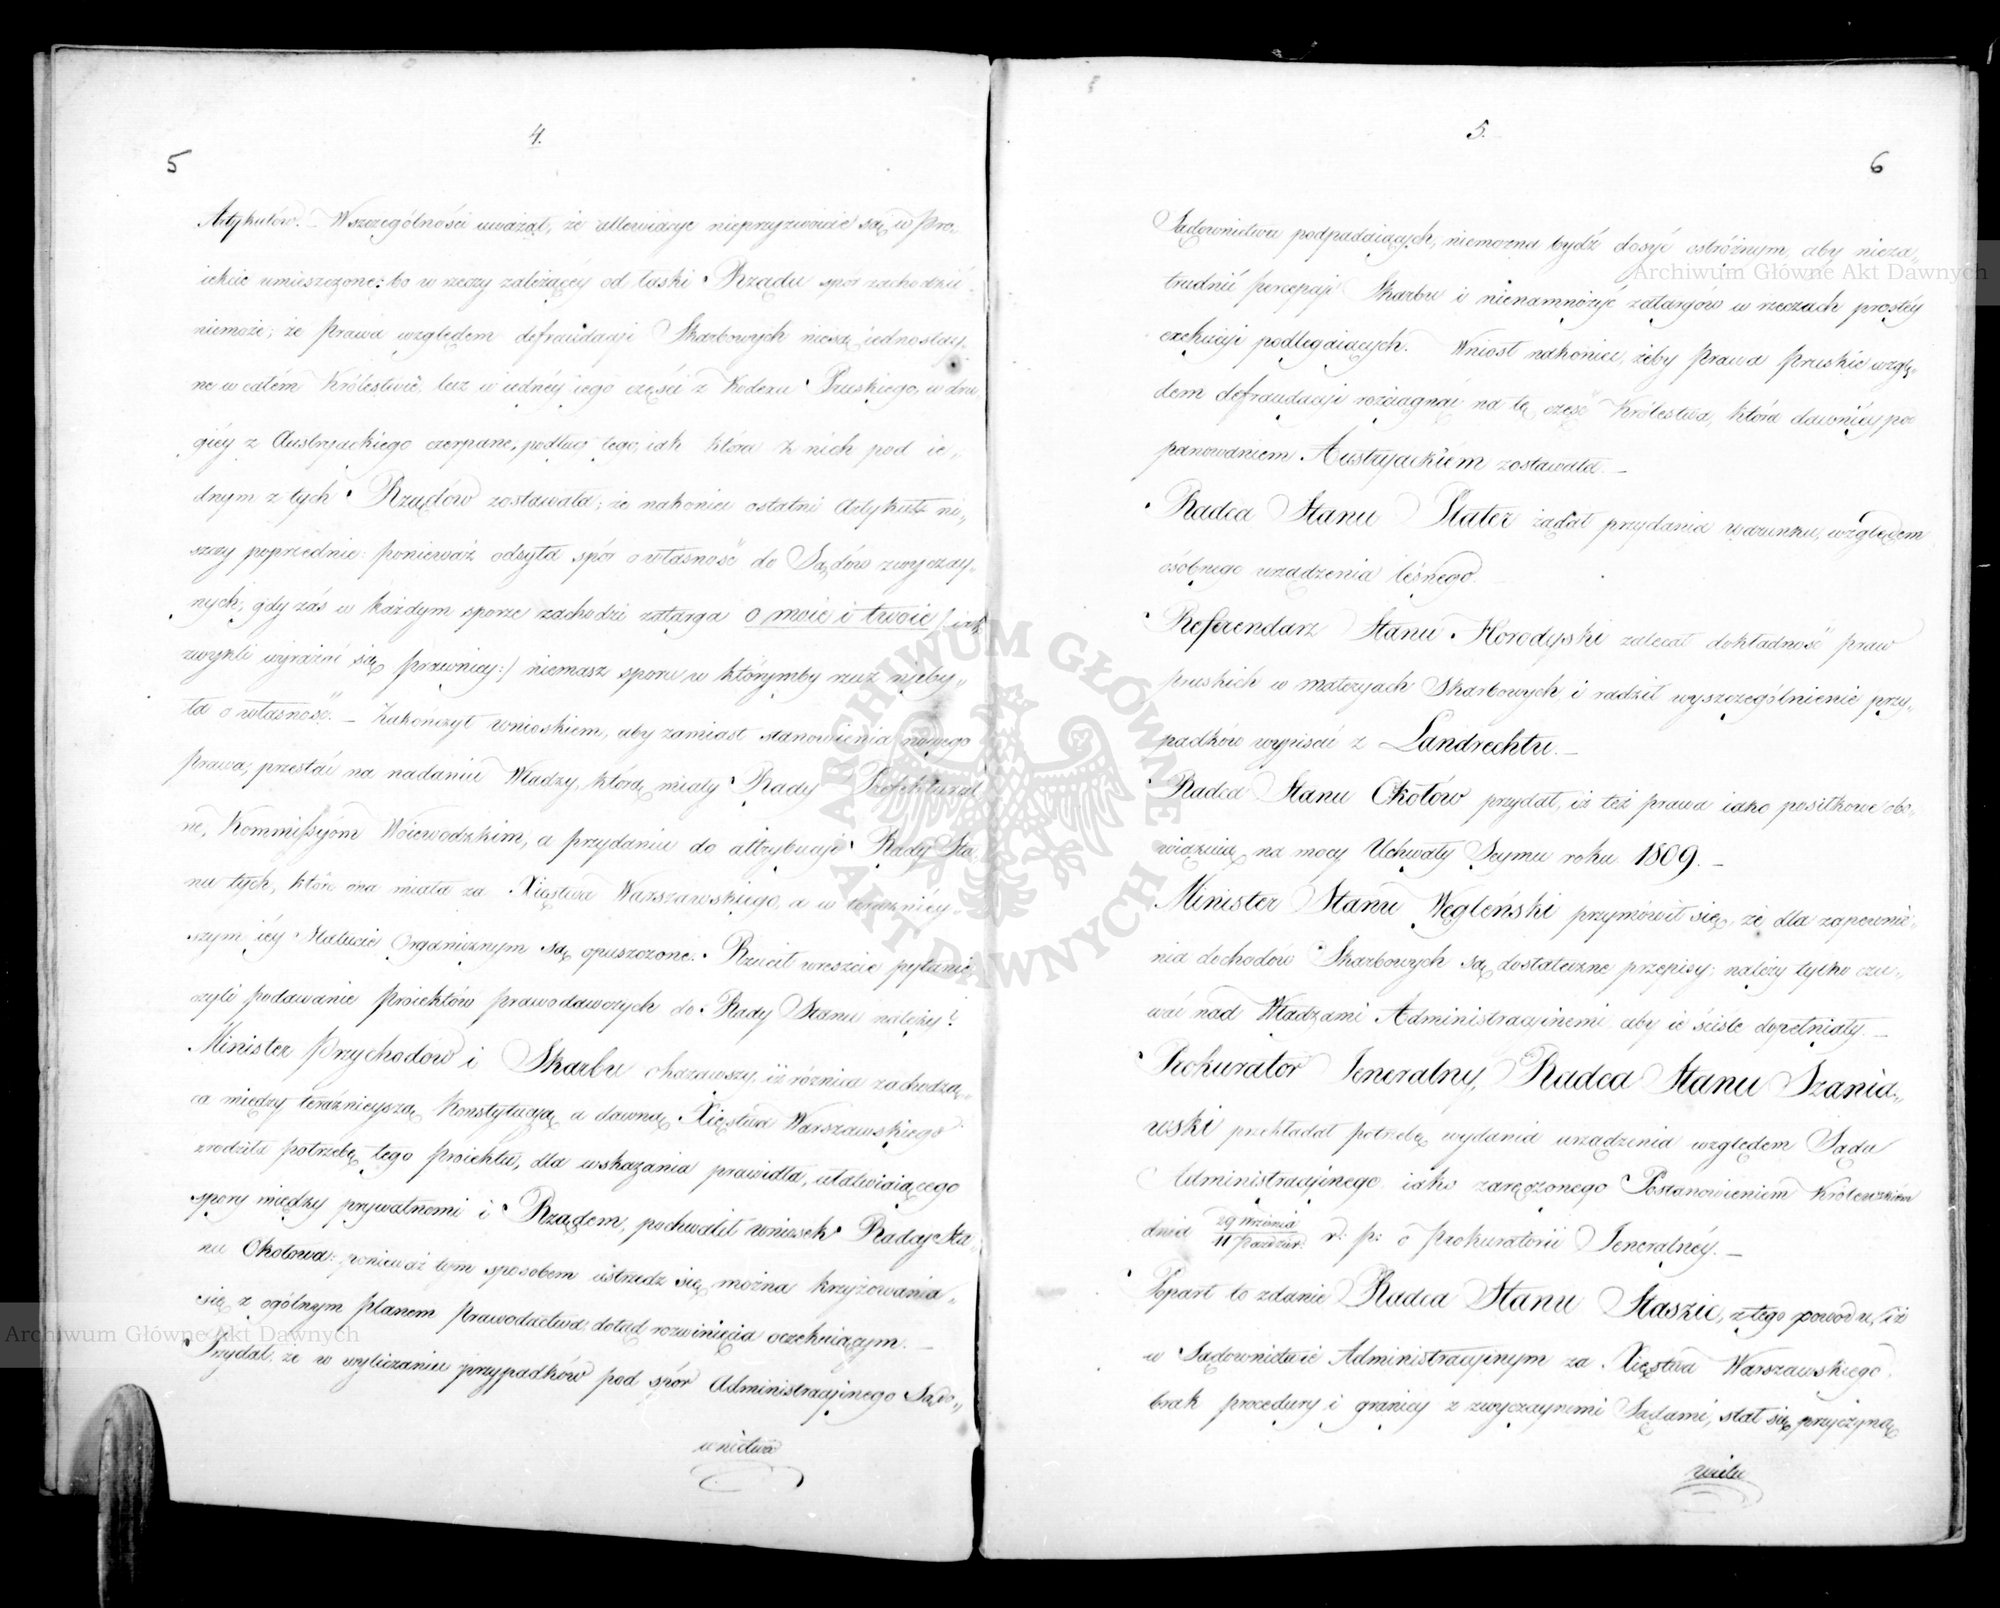 4.
5
Artykułów. – W szczególności uważał, że allewiacye nieprzyzwoicie są w Pro„
iekcie umieszczone; bo w rzeczy zależącey od łaski Rządu spór zachodzić
niemoże; że prawa względem defraudacyi Skarbowych niesą iednostay„
ne w całém Królestwie, lecz w iednéy iego części z Kodexu Pruskiego, w dru„
giéy z Austryackiego czerpane, podług tego, iak która z nich pod ie„
dnym z tych Rządów zostawała; że nakoniec ostatni Artykuł ni„
szczy poprzednie: ponieważ odsyła spór o własność do Sądów zwyczay„
nych, gdy zaś w każdym sporze zachodzi zatarga o moie i twoie /: iak
zwykli wyrażać się prawnicy:/ niemasz sporu w którymby rzecz nieby„
ła o własność. – Zakończył wnioskiem, aby zamiast stanowienia nowego
prawa, przestać na nadaniu Władzy, którą miały Rady Prefektural„
ne, Kommissyióm Woiewodzkim, a przydaniu do attrybucyi Rady Sta„
nu tych, które ona miała za Xięstwa Warszawskiego, a w teraźniéy„
szym iéy Statucie Organicznym są opuszczone. Rzucił wreszcie pytanie,
czyli podawanie proiektów prawodawczych do Rady Stanu należy?
Minister Przychodów i Skarbu okazawszy, iż różnica zachodzą„
ca między teraźnieyszą Konstytucyą a dawną Xięstwa Warszawskiego
zrodziła potrzebę tego proiektu, dla wskazania prawidła, ułatwiaiącego
spory między prywatnemi i Rządem, pochwalił wniosek Radcy Sta„
nu Okołowa: ponieważ tym sposobem ustrzedz się można krzyżowania
się z ogólnym planem Prawodactwa, dotąd rozwinięcia oczekuiącym. –
Przydał, że w wyliczaniu przypadków pod spór Administracyinego Sądo„
wnictwa
5.
6
Sądownictwa podpadaiących, niemożna bydź dosyć ostróżnym, aby nieza„
trudnić percepcyi Skarbu i nienamnożyć zatargów w rzeczach prostéy
exekucyi podlegaiących. Wniosł nakoniec, żeby prawa pruskie wzglę„
dem defraudacyi rozciągnąć na tę część Królestwa, która dawniéy pod
panowaniem Austryackiém zostawała. –
Radca Stanu Plater żądał przydania warunku, względem
osóbnego urządzenia leśnego. –
Referendarz Stanu Horodyski zalecał dokładność praw
pruskich w materyach Skarbowych i radził wyszczególnienie przy„
padków wypisać z Landrechtu. –
Radca Stanu Okołów przydał, iż też prawa iako posiłkowe obo„
wiązuią na mocy Uchwały Seymu roku 1809. –
Minister Stanu Węgleński przymówił się, że dla zapewnie„
nia dochodów Skarbowych są dostateczne przepisy; należy tylko czu„
wać nad Władzami Administracyinemi, aby ie ściśle dopełniały. –
Prokurator Jeneralny, Radca Stanu Szania„
wski przekładał potrzebę wydania urządzenia względem Sądu
Administracyinego, iako zaręczonego Postanowieniem Królewskiém
dnia 29 Września / 11 Paździer: r: p: o Prokuratorii Jeneralnéy. –
Poparł to zdanie Radca Stanu Staszic, z tego powodu, iż
w Sądownictwie Administracyinym za Xięstwa Warszawskiego,
brak procedury i granicy z zwyczaynemi Sądami, stał się przyczyną
wielu
Archiwum Główne Akt Dawnych
Archiwum Główne Akt Dawnych
ARCHIWUM GŁÓWNE AKT DAWNYCH